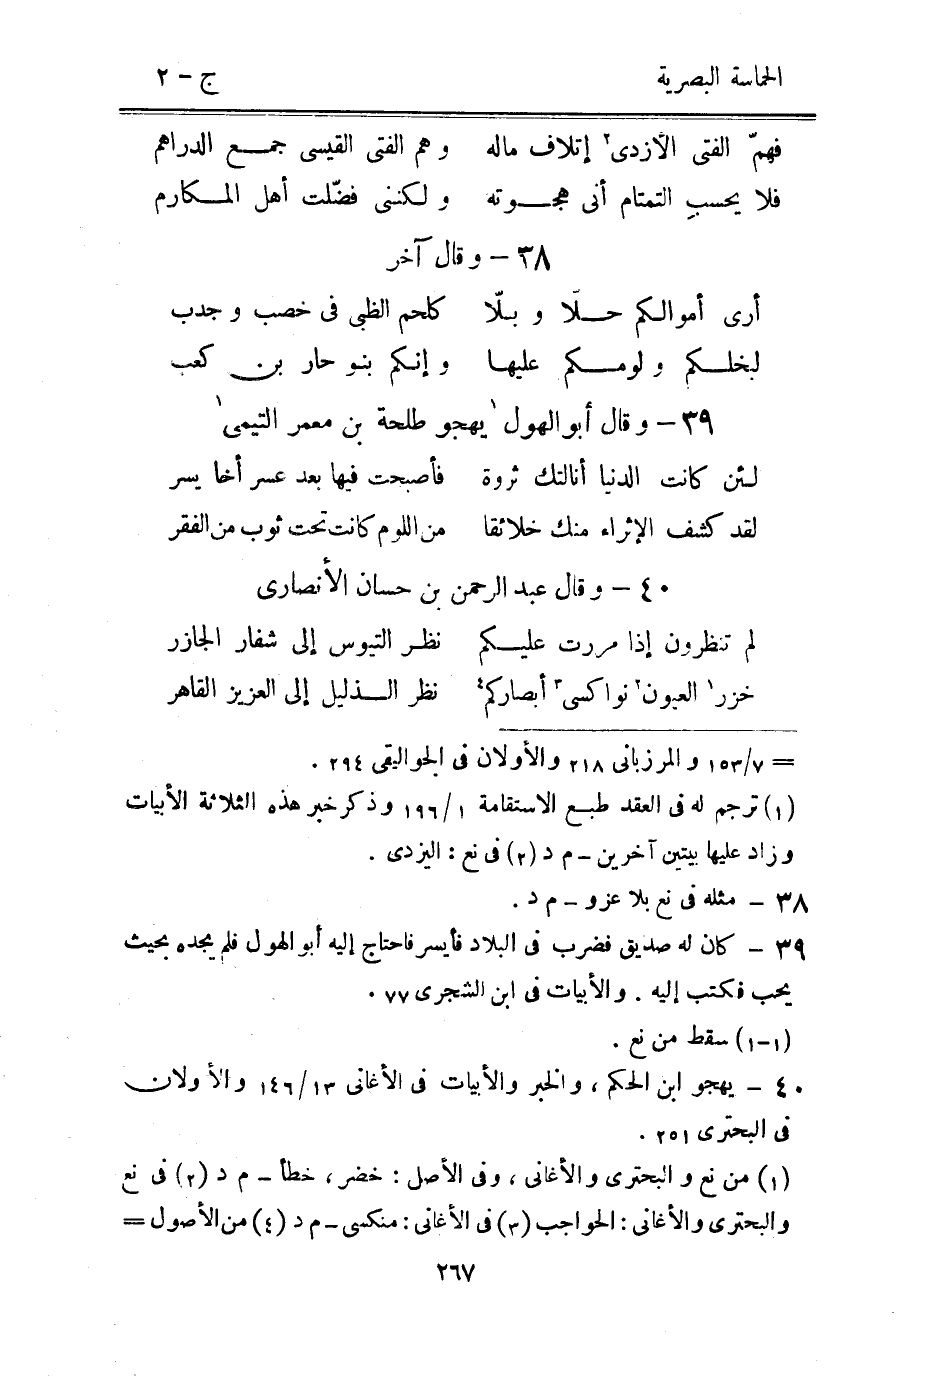 الحماسة البصرية ج - ٢
فهمّ الفتى الأزدى٢ إتلاف ماله و هم الفتى القيسى جمع الدراهم
فلا يحسبِ التمتام أنى هجوته و لكننى فضّلت أهل المكارم
٣٨ - و قال آخر
أرى أموالكم حلّا و بلّا كلحم الظبى فى خصب و جدب
لبخلكم و لومكم عليها و إنكم بنو حار بن كعب
٣٩ - و قال أبو الهول ١يهجو طلحة بن معمر التيمى١
لئن كانت الدنيا أنالتك ثروة فأصبحت فيها بعد عسر أخا يسر
لقد كشف الإثراء منك خلائقا من اللوم كانت تحت ثوب من الفقر
٤٠ - و قال عبد الرحمن بن حسان الأنصارى
لم تنظرون إذا مررت عليكم نظر التيوس إلى شفار الجازر
خزر١ العيون٢ نواكسى٣ أبصاركم٤ نظر الذليل إلى العزيز القاهر
= ١٥٣/٧ و المرزبانى ٢١٨ والأولان فى الجواليقى ٢٩٤ .
(١) ترجم له فى العقد طبع الاستقامة ١٩٦/١ وذكر خبر هذه الثلاثة الأبيات
و زاد عليها بيتين آخرين - م د (٢) فى نع : اليزدى .
٣٨ - مثله فى نع بلا عزو - م د .
٣٩ - كان له صديق فضرب فى البلاد فأيسر فاحتاج إليه أبو الهول فلم يجده بحيث
يحب فكتب إليه . والأبيات فى ابن الشجرى ٧٧ .
(١-١) سقط من نع .
٤٠ - يهجو ابن الحكم ، والخبر والأبيات فى الأغانى ١٤٦/١٣ والأولان
فى البحترى ٢٥١ .
(١) من نع و البحترى و الأغانى ، وفى الأصل : خضر ، خطأ - م د (٢) فى نع
و البحترى و الأغانى : الحواجب (٣) فى الأغانى : منكسى - م د (٤) من الأصول =
٢٦٧